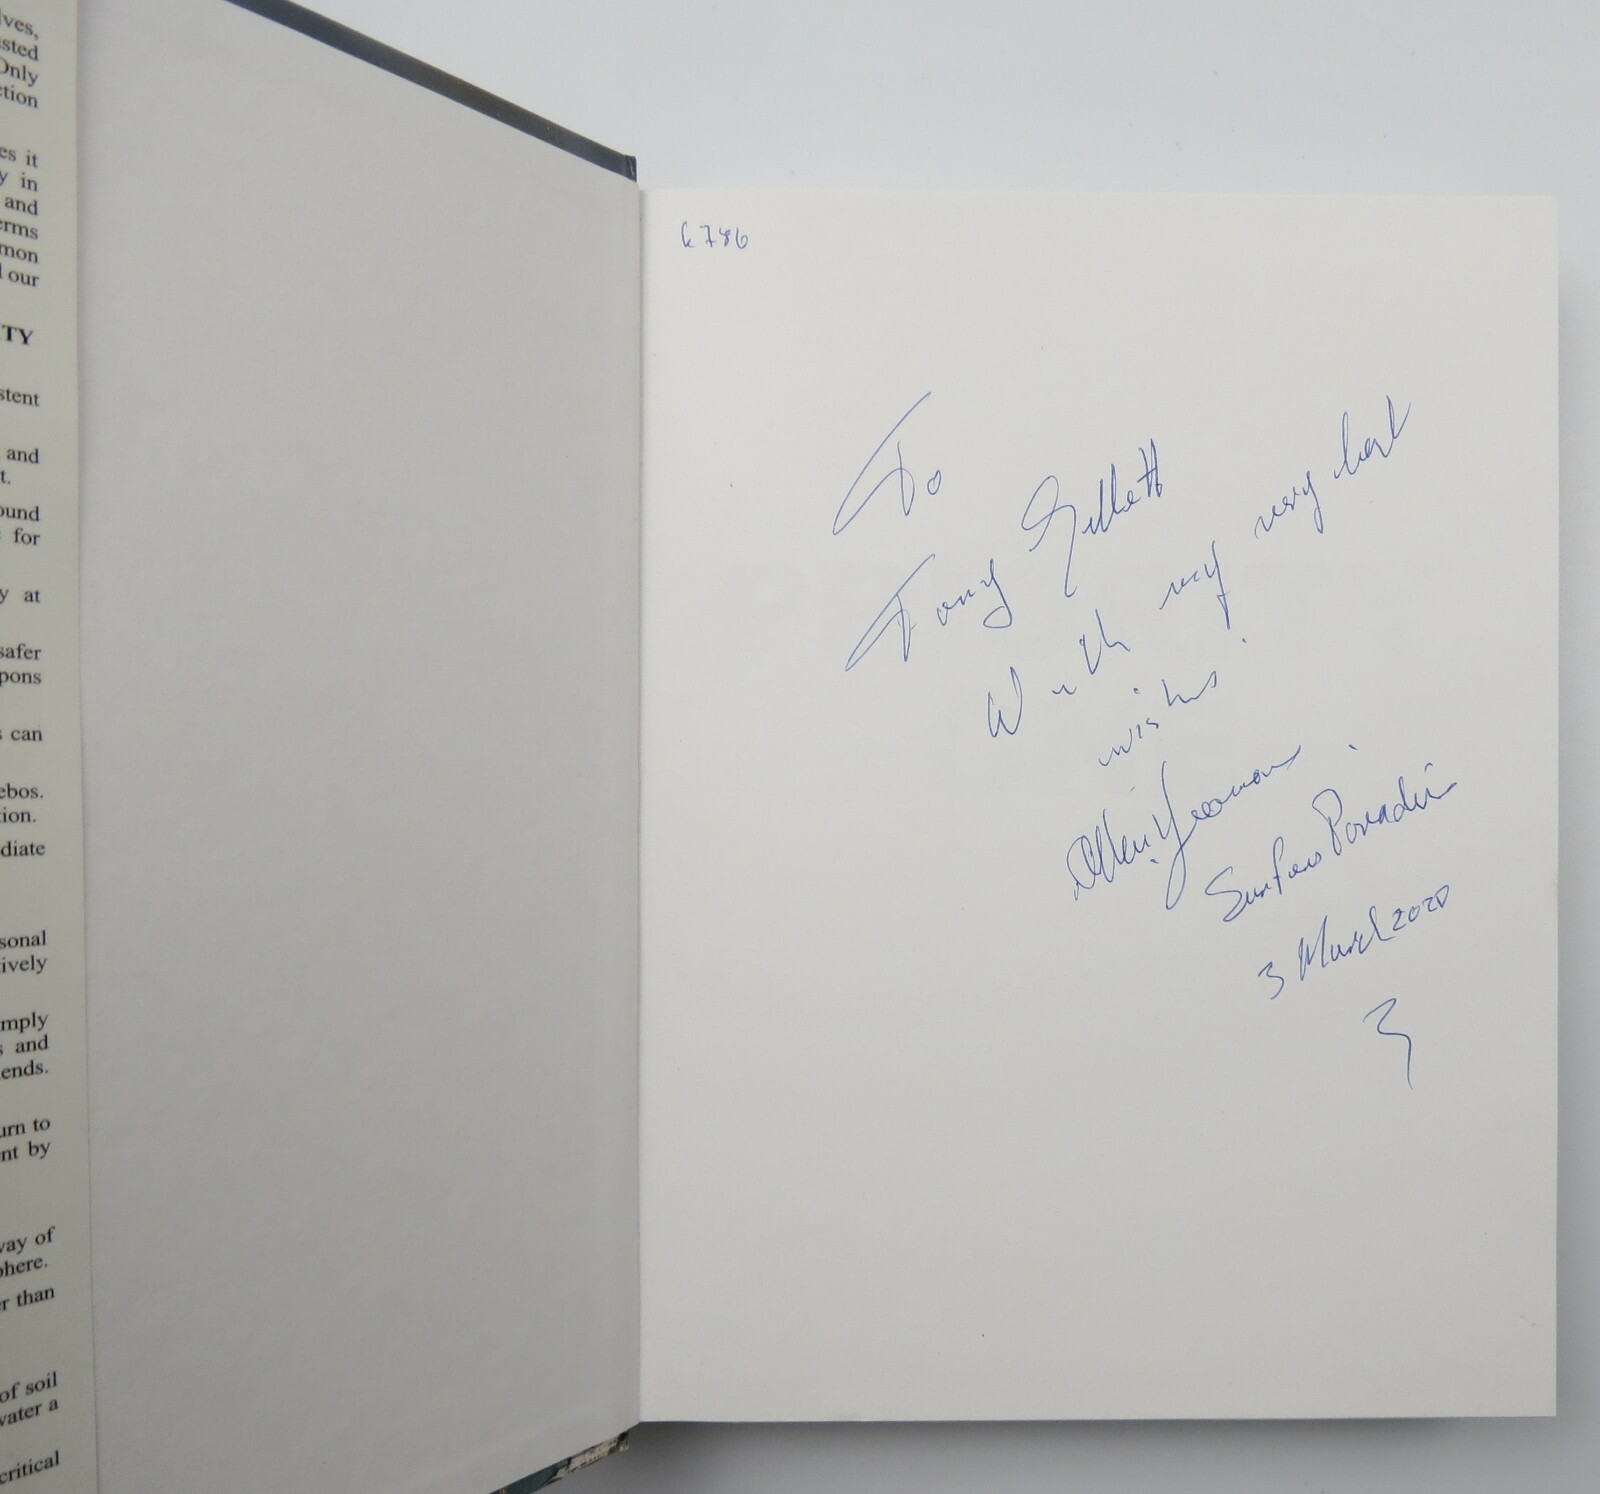 lves,
sted
Only
ction
es it
y in
and
erms
mon
l our
ITY
stent
and
t.
ound
for
y at
safer
pons
s can
ebos.
ion.
diate
sonal
ively
mply
s and
ends.
urn to
nt by
way of
phere.
r than
of soil
water a
critical
6786
To
Tony Gillett
With my very best
wishes.
Allan Yeomans
Surfers Paradise
3 March 2020